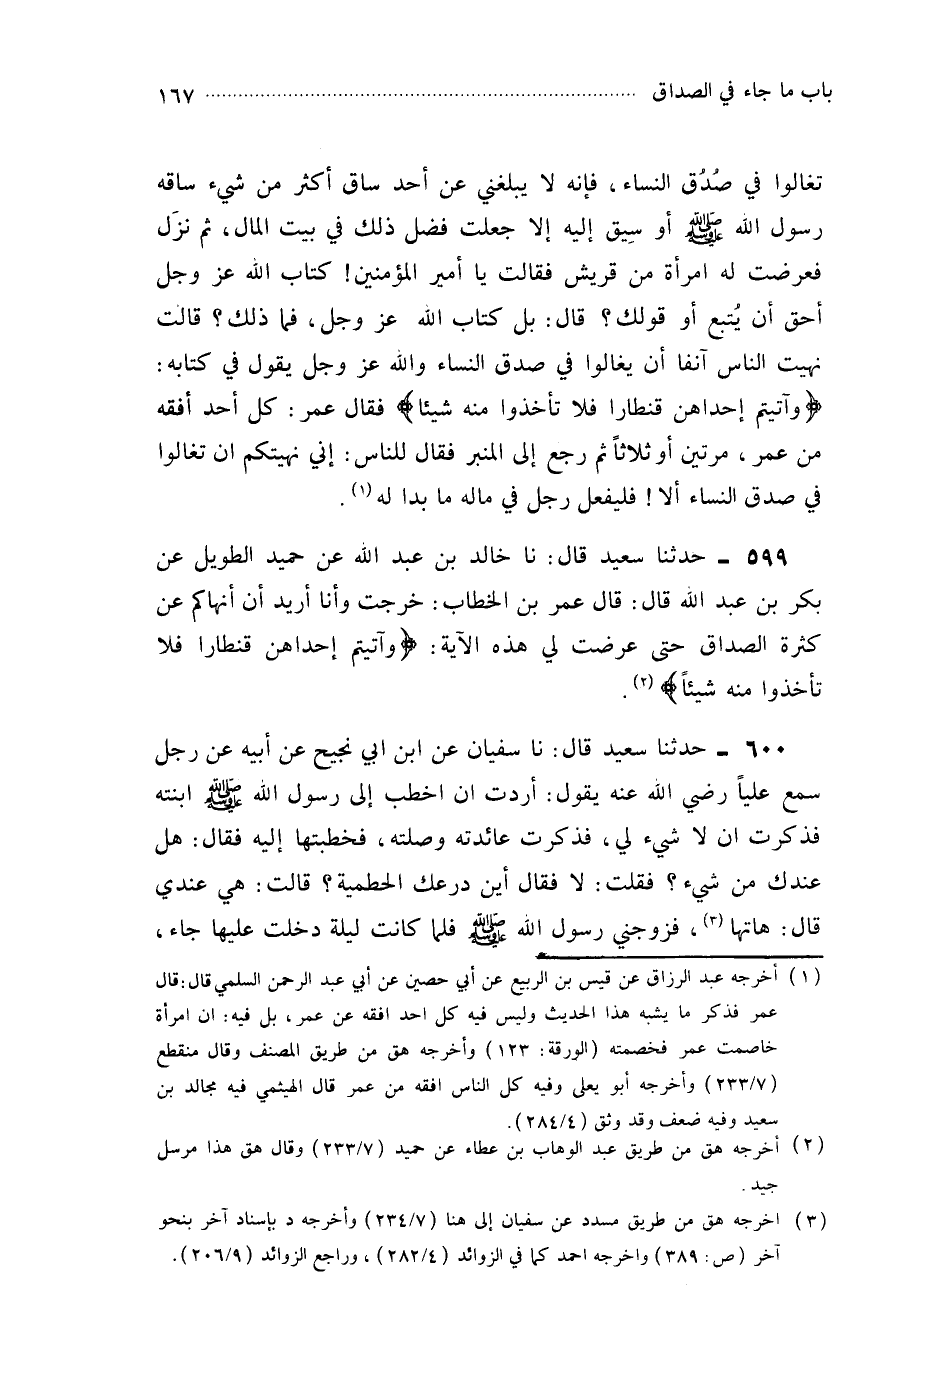 باب ما جاء في الصداق ........................ ١٦٧
تغالوا في صُدُق النساء، فإنه لا يبلغني عن أحد ساق أكثر من شيء ساقه
رسول الله ﷺ أو سِيق إليه إلا جعلت فضل ذلك في بيت المال، ثم نزَل
فعرضت له امرأة من قريش فقالت يا أمير المؤمنين! كتاب الله عز وجل
أحق أن يُتبع أو قولك؟ قال: بل كتاب الله عز وجل، فما ذلك؟ قالت
نهيت الناس آنفا أن يغالوا في صدق النساء والله عز وجل يقول في كتابه:
﴿وآتيتم إحداهن قنطارا فلا تأخذوا منه شيئا﴾ فقال عمر: كل أحد أفقه
من عمر، مرتين أو ثلاثاً ثم رجع إلى المنبر فقال للناس: إني نهيتكم ان تغالوا
في صدق النساء ألا! فليفعل رجل في ماله ما بدا له (١).
٥٩٩ ـ حدثنا سعيد قال: نا خالد بن عبد الله عن حميد الطويل عن
بكر بن عبد الله قال: قال عمر بن الخطاب: خرجت وأنا أريد أن أنهاكم عن
كثرة الصداق حتى عرضت لي هذه الآية: ﴿وآتيتم إحداهن قنطارا فلا
تأخذوا منه شيئاً﴾ (٢).
٦٠٠ ـ حدثنا سعيد قال: نا سفيان عن ابن ابي نجيح عن أبيه عن رجل
سمع علياً رضي الله عنه يقول: أردت ان اخطب إلى رسول الله ﷺ ابنته
فذكرت ان لا شيء لي، فذكرت عائدته وصلته، فخطبتها إليه فقال: هل
عندك من شيء؟ فقلت: لا فقال أين درعك الحطمية؟ قالت: هي عندي
قال: هاتها (٣)، فزوجني رسول الله ﷺ فلما كانت ليلة دخلت عليها جاء،
(١) أخرجه عبد الرزاق عن قيس بن الربيع عن أبي حصين عن أبي عبد الرحمن السلمي قال: قال
عمر فذكر ما يشبه هذا الحديث وليس فيه كل احد افقه عن عمر، بل فيه: ان امرأة
خاصمت عمر فخصمته (الورقة: ١٢٣) وأخرجه هق من طريق المصنف وقال منقطع
(٢٣٣/٧) وأخرجه أبو يعلى وفيه كل الناس افقه من عمر قال الهيثمي فيه مجالد بن
سعيد وفيه ضعف وقد وثق (٢٨٤/٤).
(٢) أخرجه هق من طريق عبد الوهاب بن عطاء عن حميد (٢٣٣/٧) وقال هق هذا مرسل
جيد.
(٣) اخرجه هق من طريق مسدد عن سفيان إلى هنا (٢٣٤/٧) وأخرجه د بإسناد آخر بنحو
آخر (ص: ٣٨٩) واخرجه احمد كما في الزوائد (٢٨٢/٤)، وراجع الزوائد (٢٠٦/٩).